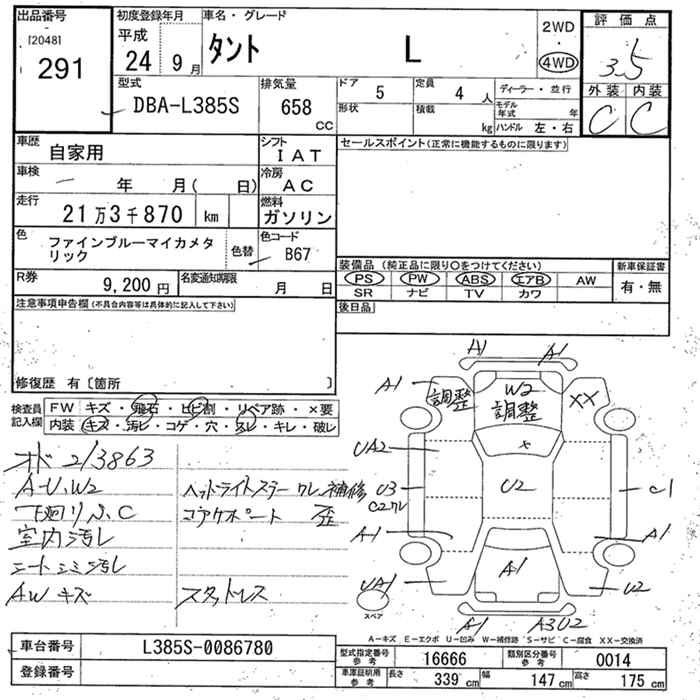 出品番号
[2048]
291
初度登録年月
平成
24 9月
車名・グレード
タント L
2WD
・
4WD
評価点
3.5
外装 内装
C C
型式
DBA-L385S
排気量
658
cc
ドア
5
形状
定員
4 人
積載
kg
ディーラー・並行
モデル年式 年
ハンドル 左・右
車歴
自家用
シフト
IAT
車検
年 月( 日)
冷房
AC
走行
21万3千870 km
燃料
ガソリン
色
ファインブルーマイカメタリック
色替
色コード
B67
R券
9,200円
名変通知期限
月 日
セールスポイント(正常に機能するものに限ります)
装備品 (純正品に限り○をつけてください)
PS PW ABS エアB AW
SR ナビ TV カワ
新車保証書
有・無
後日品
注意事項申告欄(不具合内容等は具体的に記入して下さい)
修復歴 有〔箇所 〕
検査員記入欄
FW キズ・飛石・ヒビ割・リペア跡・×要
内装 キズ・汚レ・コゲ・穴・スレ・キレ・破レ
オド 213863
A-U、W2
下廻りS、C
室内汚レ
シートシミ汚レ
AWキズ
ヘッドライトステー ワレ補修
コアサポート 歪
スタッドレス
A1 A1
A1 調整 W2 調整 XX
×
UA2
U3
C2ワレ
U2
C1
A1 A1
UA1 A1 U2
スペア
A1 A3U2
A−キズ E−エクボ U−凹み W−補修跡 S−サビ C−腐食 XX−交換済
車台番号 L385S-0086780
登録番号
型式指定番号 参考 16666
類別区分番号 参考 0014
車庫証明用 参考 長さ 339 cm 幅 147 cm 高さ 175 cm